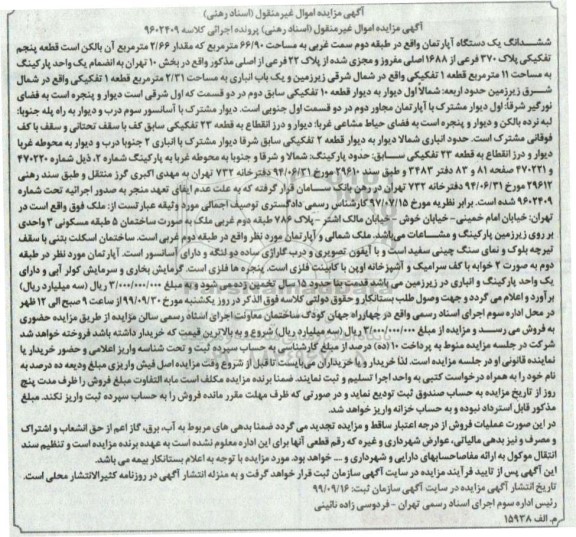 آگهی مزایده اموال غیرمنقول (اسناد رهنی)
آگهی مزایده اموال غیرمنقول (اسناد رهنی) پرونده اجرائی کلاسه ۹۶۰۲۴۰۹
ششدانگ یک دستگاه آپارتمان واقع در طبقه دوم سمت غربی به مساحت ۶۶/۹۰ مترمربع که مقدار ۲/۶۶ مترمربع آن بالکن است قطعه پنجم
تفکیکی پلاک ۳۷۰ فرعی از ۱۶۸۸ اصلی مفروز و مجزی شده از پلاک ۲۲ فرعی از اصلی مذکور واقع در بخش ۱۰ تهران به انضمام یک واحد پارکینگ
به مساحت ۱۱ مترمربع قطعه ۱ تفکیکی واقع در شمال شرقی زیرزمین و یک باب انباری به مساحت ۲/۳۱ مترمربع قطعه ۱ تفکیکی واقع در شمال
شرق زیرزمین حدود اربعه: شمالا اول دیوار به دیوار قطعه ۱۰ تفکیکی سابق دوم در دو قسمت که اول شرقی است دیوار و پنجره است به فضای
نورگیر شرقا: اول دیوار مشترک با آپارتمان مجاور دوم در دو قسمت اول جنوبی است. دیوار مشترک با آسانسور سوم درب و دیوار به راه پله جنوبا:
لبه نرده بالکن و دیوار و پنجره است به فضای حیاط مشاعی غربا: دیوار و درز انقطاع به قطعه ۲۳ تفکیکی سابق کف با سقف تحتانی و سقف با کف
فوقانی مشترک است. حدود انباری شمالا دیوار به دیوار قطعه ۲ تفکیکی سابق شرقا دیوار مشترک با انباری ۲ جنوبا درب و دیوار به محوطه غربا
دیوار و درز انقطاع به قطعه ۲۳ تفکیکی سابق: حدود پارکینگ: شمالا و شرقا و جنوبا به محوطه غربا به پارکینگ شماره ۲، ذیل شماره ۴۷۰۲۲۰
و ۴۷۰۲۲۱ صفحه ۸۱ و ۸۳ دفتر ۲۴۸۳ و طبق سند ۲۹۶۱۰ مورخ ۹۴/۰۶/۳۱ دفترخانه ۷۳۲ تهران به مهدی اکبری گرز منتقل و طبق سند رهنی
۲۹۶۱۲ مورخ ۹۴/۰۶/۳۱ دفترخانه ۷۳۲ تهران در رهن بانک سامان قرار گرفته که به علت عدم ایفای تعهد منجر به صدور اجرائیه تحت شماره
۹۶۰۲۴۰۹ شده است. برابر نظریه مورخ ۹۷/۰۷/۱۵ کارشناس رسمی دادگستری توصیف اجمالی مورد وثیقه عبارتست از: ملک فوق واقع است در
تهران: خیابان امام خمینی – خیابان خوش – خیابان مالک اشتر – پلاک ۷۸۶ طبقه دوم غربی ملک به صورت ساختمان ۵ طبقه مسکونی ۳ واحدی
بر روی زیرزمین پارکینگ و مشاعات می‌باشد. ملک شمالی و آپارتمان مورد نظر واقع در طبقه دوم غربی است. ساختمان اسکلت بتنی با سقف
تیرچه بلوک و نمای سنگ چینی سفید است و با آیفون تصویری و درب گاراژی ساده دو لنگه و دارای آسانسور است. آپارتمان مورد نظر در طبقه
دوم به صورت ۲ خوابه با کف سرامیک و آشپزخانه اوپن با کابینت فلزی است. پنجره ها فلزی است. گرمایش بخاری و سرمایش کولر آبی و دارای
یک واحد پارکینگ و انباری در زیرزمین می باشد قدمت بنا حدود ۱۵ سال تخمین زده می شود و به مبلغ ۳/۰۰۰/۰۰۰/۰۰۰ ریال (سه میلیارد ریال)
برآورد و اعلام می گردد و جهت وصول طلب بستانکار و حقوق دولتی کلاسه فوق الذکر در روز یکشنبه مورخ ۹۹/۰۹/۳۰ از ساعت ۹ صبح الی ۱۲ ظهر
در محل اداره سوم اجرای اسناد رسمی واقع در چهارراه جهان کودک ساختمان معاونت اجرای اسناد رسمی سالن مزایده از طریق مزایده حضوری
به فروش می رسد و مزایده از مبلغ ۳/۰۰۰/۰۰۰/۰۰۰ ریال (سه میلیارد ریال) شروع و به بالاترین قیمت که خریدار داشته باشد فروخته خواهد شد
شرکت در جلسه مزایده منوط به پرداخت ۱۰ (ده) درصد از مبلغ کارشناسی به حساب سپرده ثبت و تحت شناسه واریز اعلامی و حضور خریدار یا
نماینده قانونی او در جلسه مزایده است. لذا خریدار و یا خریداران می‌بایست تا قبل از شروع وقت مزایده اصل فیش واریزی مبلغ ودیعه ده درصد به
نام خود را به همراه درخواست کتبی به واحد اجرا تسلیم و ثبت نمایند. ضمنا برنده مزایده مکلف است مابه التفاوت مبلغ فروش را ظرف مدت پنج
روز از تاریخ مزایده به حساب صندوق ثبت تودیع نماید و در صورتی که ظرف مهلت مقرر مانده فروش را به حساب سپرده ثبت واریز نکند. مبلغ
مذکور قابل استرداد نبوده و به حساب خزانه واریز خواهد شد.
در این صورت عملیات فروش از درجه اعتبار ساقط و مزایده تجدید می گردد ضمنا بدهی های مربوط به آب، برق، گاز اعم از حق انشعاب و اشتراک
و مصرف و نیز بدهی مالیاتی، عوارض شهرداری و غیره که رقم قطعی آنها برای این اداره معلوم نشده است به عهده برنده مزایده است و تنظیم سند
انتقال موکول به ارائه مفاصاحسابهای دارایی و شهرداری و .... خواهد بود. مورد مزایده با توجه به اعلام بستانکار بیمه می باشد.
این آگهی پس از تایید فرآیند مزایده در سایت آگهی سازمان ثبت قرار خواهد گرفت و به منزله انتشار آگهی در روزنامه کثیرالانتشار محلی است.
تاریخ انتشار آگهی مزایده در سایت آگهی سازمان ثبت: ۹۹/۰۹/۱۶
رئیس اداره سوم اجرای اسناد رسمی تهران – فردوسی زاده نائینی
م. الف ۱۵۹۳۸